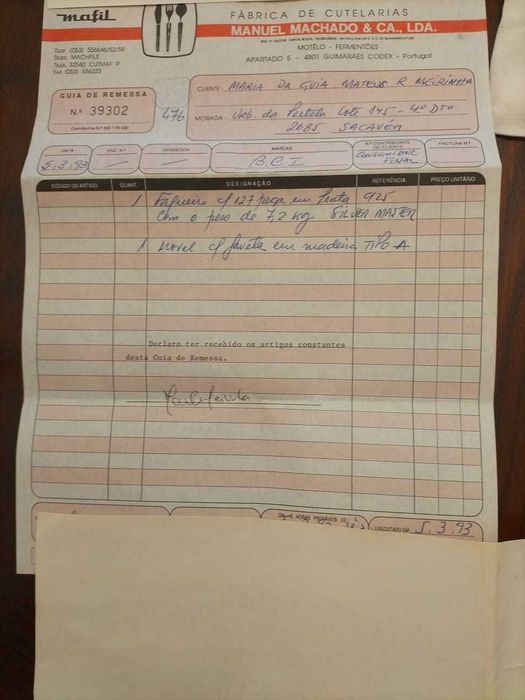 mafil
FÁBRICA DE CUTELARIAS
MANUEL MACHADO & CA., LDA.
MOTÊLO - FERMENTÕES
APARTADO 5 - 4801 GUIMARÃES CODEX - Portugal
Telef. (053) 556646/52/59
Teleg. MACHFILS
Telex 32580 CUTMAF P
FAX (053) 556323
GUIA DE REMESSA
N.º 39302
476
CLIENTE: MARIA DA GUIA MATEUS R MEIRINHA
MORADA: Urb. da Portela Lote 145 - 4º DTO
2685 SACAVÉM
DATA
5.3.93
ENC. N.º
MARCAS
B.C.I
N.º CONTRIBUINTE DO CLIENTE
CONSUMIDOR FINAL
FACTURA N.º
CÓDIGO DO ARTIGO QUANT. DESIGNAÇÃO REFERÊNCIA PREÇO UNITÁRIO
1 Faqueiro c/ 127 peças em Prata 925
com o peso de 7,2 kg SILVER MASTER
1 Movel c/ gaveta em madeira TIPO A
Declaro ter recebido os artigos constantes
desta Guia de Remessa.
EXECUTADO EM 5.3.93